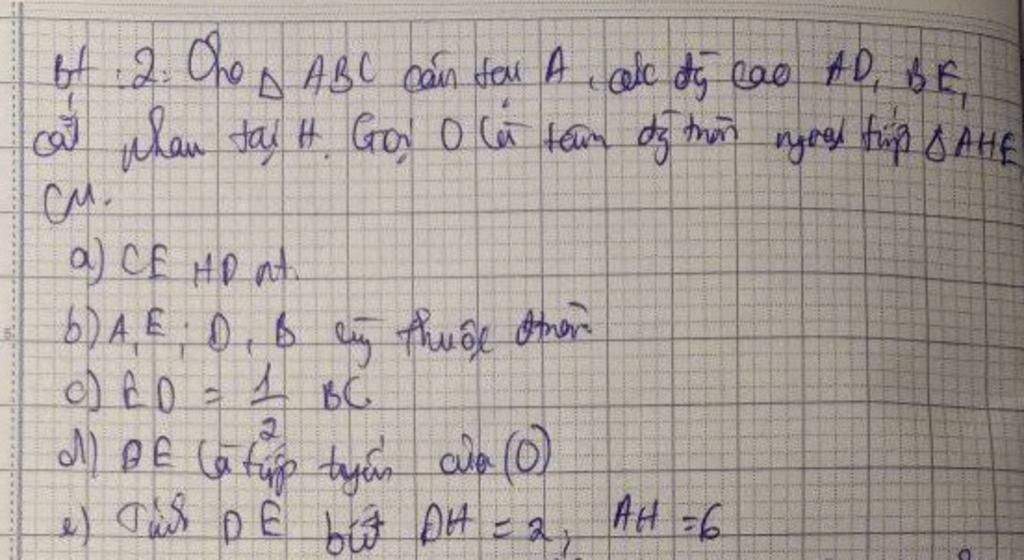 bt 2: Cho Δ ABC cân tại A, các đg cao AD, BE,
cắt nhau tại H. Gọi O là tâm đg tròn ngoại tiếp Δ AHE
CM.
a) CE HD nt.
b) A, E, D, B cùg thuộc đtròn
c) ED = 1/2 BC
d) DE là tiếp tuyến của (O)
e) Tính DE biết DH = 2, AH = 6